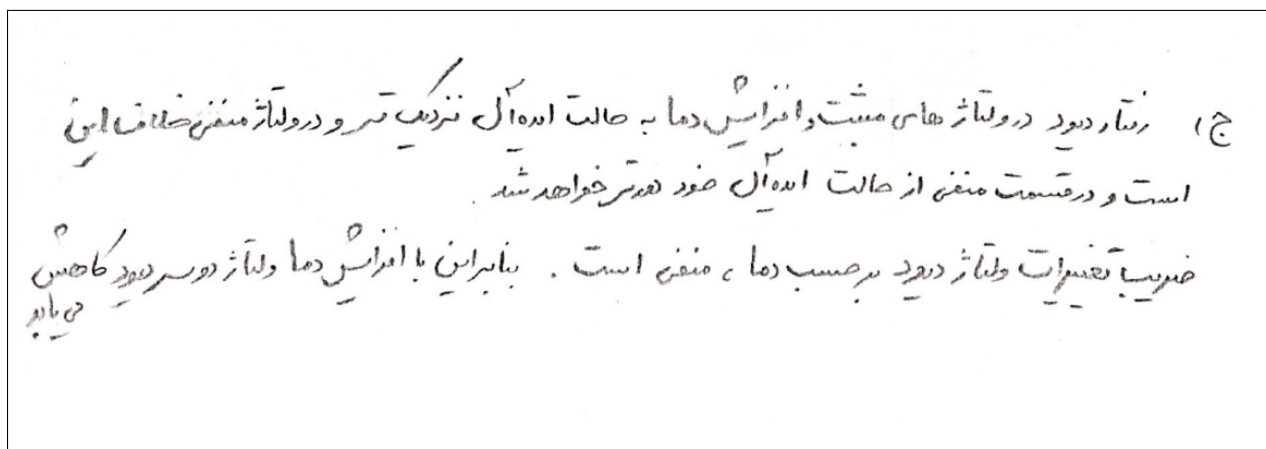 ج) رفتار دیود در ولتاژ های مثبت و افزایش دما به حالت ایده‌آل نزدیک تر و در ولتاژ منفی خلاف این
است و در قسمت منفی از حالت ایده‌آل خود دورتر خواهد شد.
ضریب تغییرات ولتاژ دیود بر حسب دما، منفی است. بنابراین با افزایش دما ولتاژ دو سر دیود کاهش
می یابد